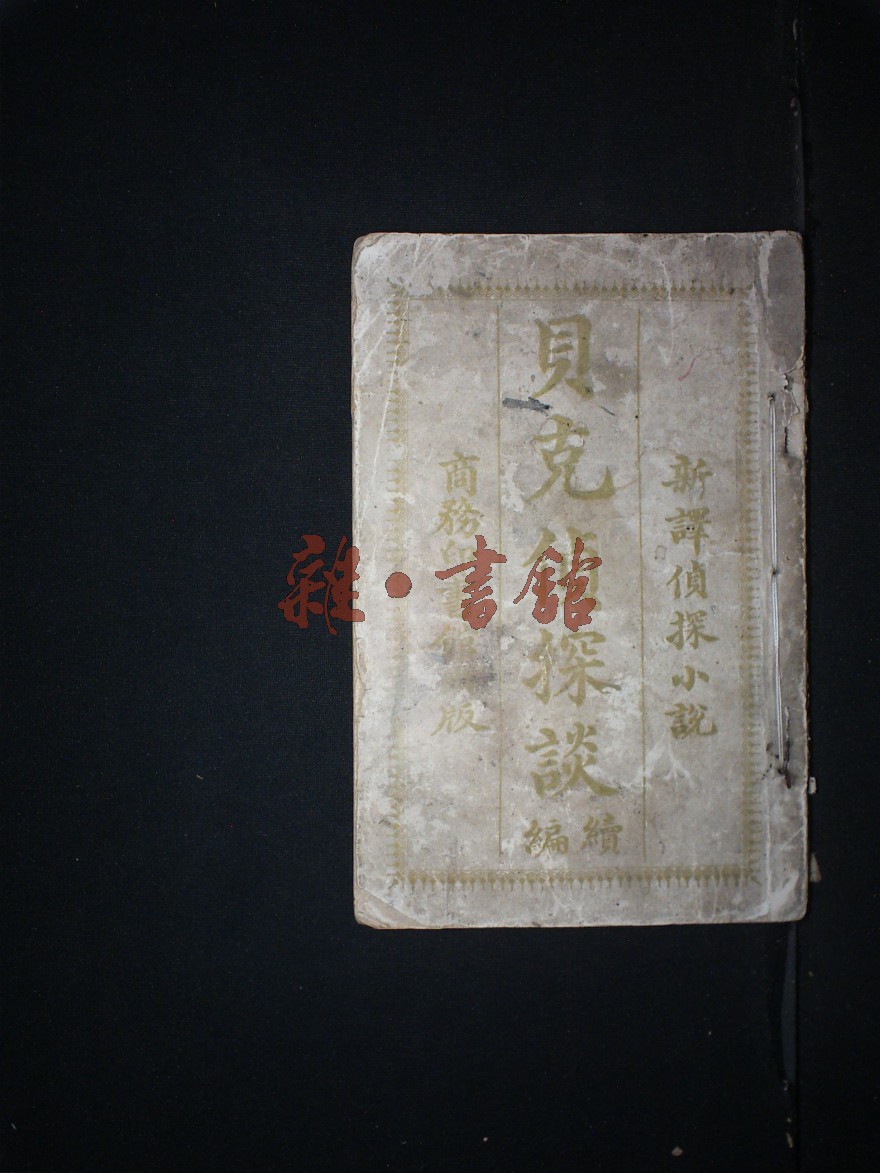 新譯偵探小說
貝克偵探談
續編
商務印書館出版
雜·書館